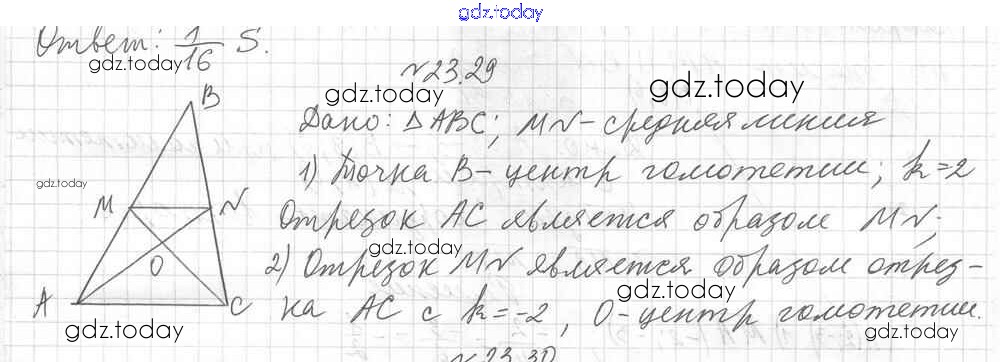 gdz.today
Ответ: 1/16 S.
gdz.today
№23.29
gdz.today
gdz.today
B
Дано: △ABC; MN - средняя линия
gdz.today
1) Точка B - центр гомотетии; k=2
M
N
Отрезок AC является образом MN;
gdz.today
O
2) Отрезок MN является образом отрез-
gdz.today
A
C
ка AC с k=-2, O - центр гомотетии.
gdz.today
gdz.today
№23.30